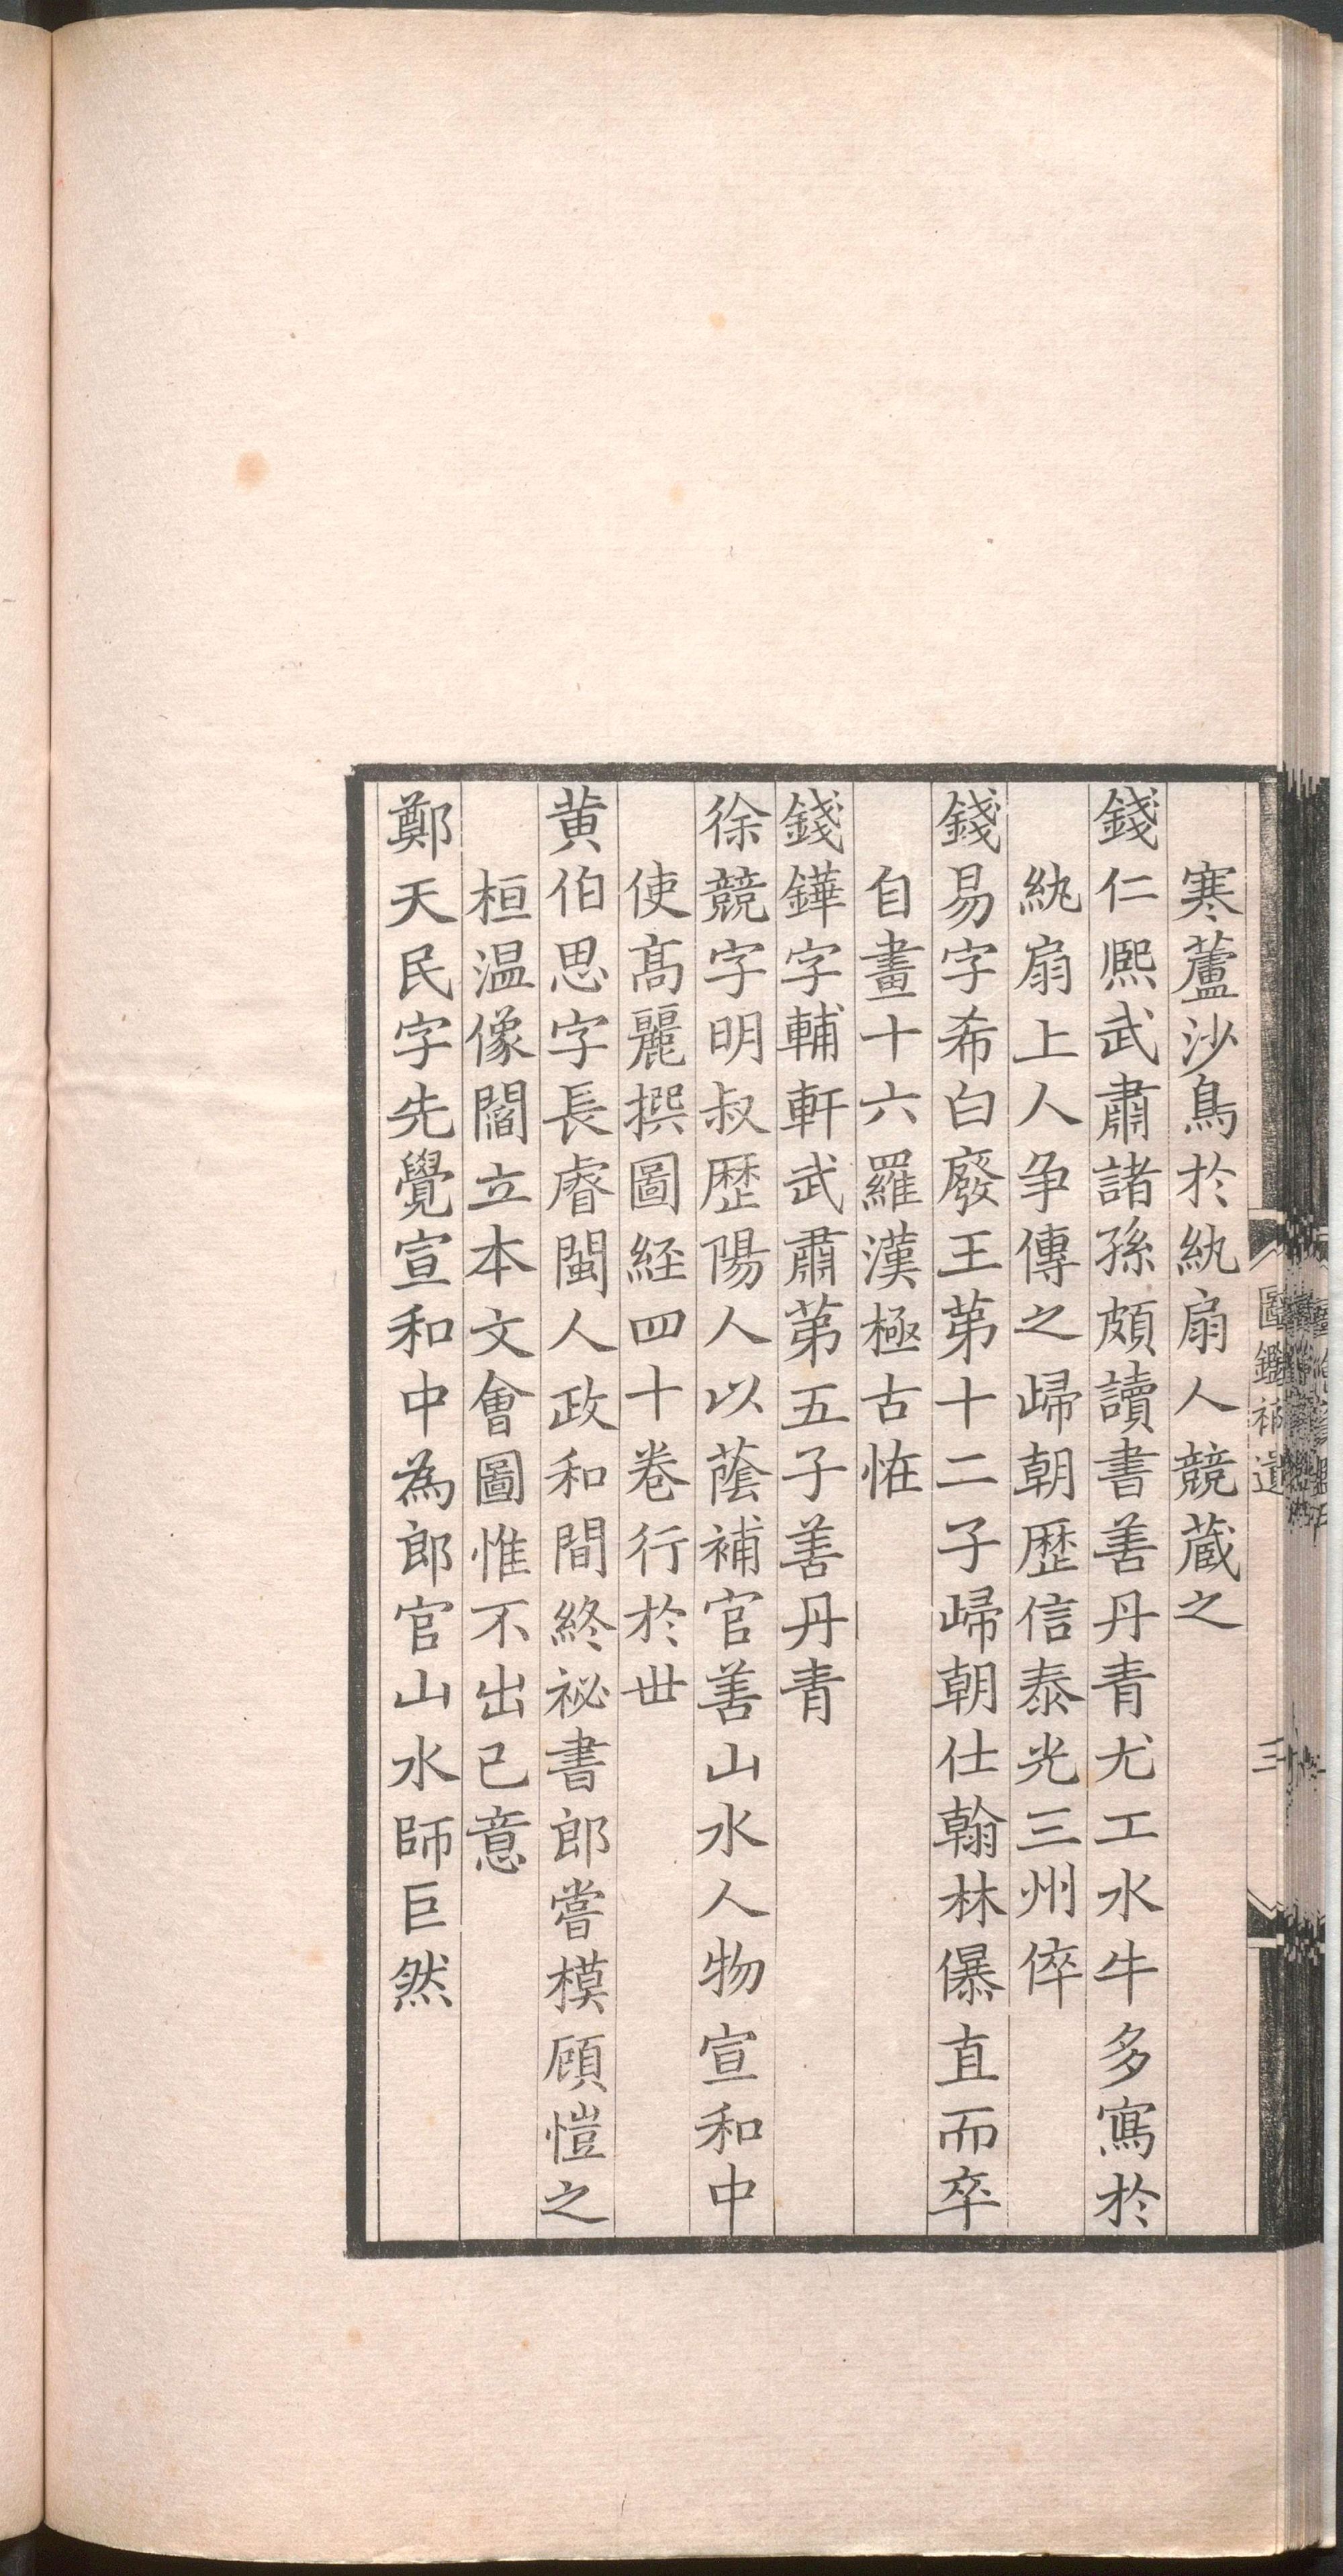 寒蘆沙鳥於紈扇人競藏之
錢仁熈武肅諸孫頗讀書善丹青尤工水牛多寫於
紈扇上人争傳之歸朝歷信泰光三州倅
錢易字希白廢王第十二子歸朝仕翰林㬥直而卒
自畫十六羅漢極古恠
錢鏵字輔軒武肅第五子善丹青
徐競字明叔歷陽人以蔭補官善山水人物宣和中
使髙麗撰圖經四十卷行於世
黄伯思字長睿閩人政和間終祕書郎嘗模顧愷之
桓温像閻立本文會圖惟不出已意
鄭天民字先覺宣和中為郎官山水師巨然
圖鑑補遺
三